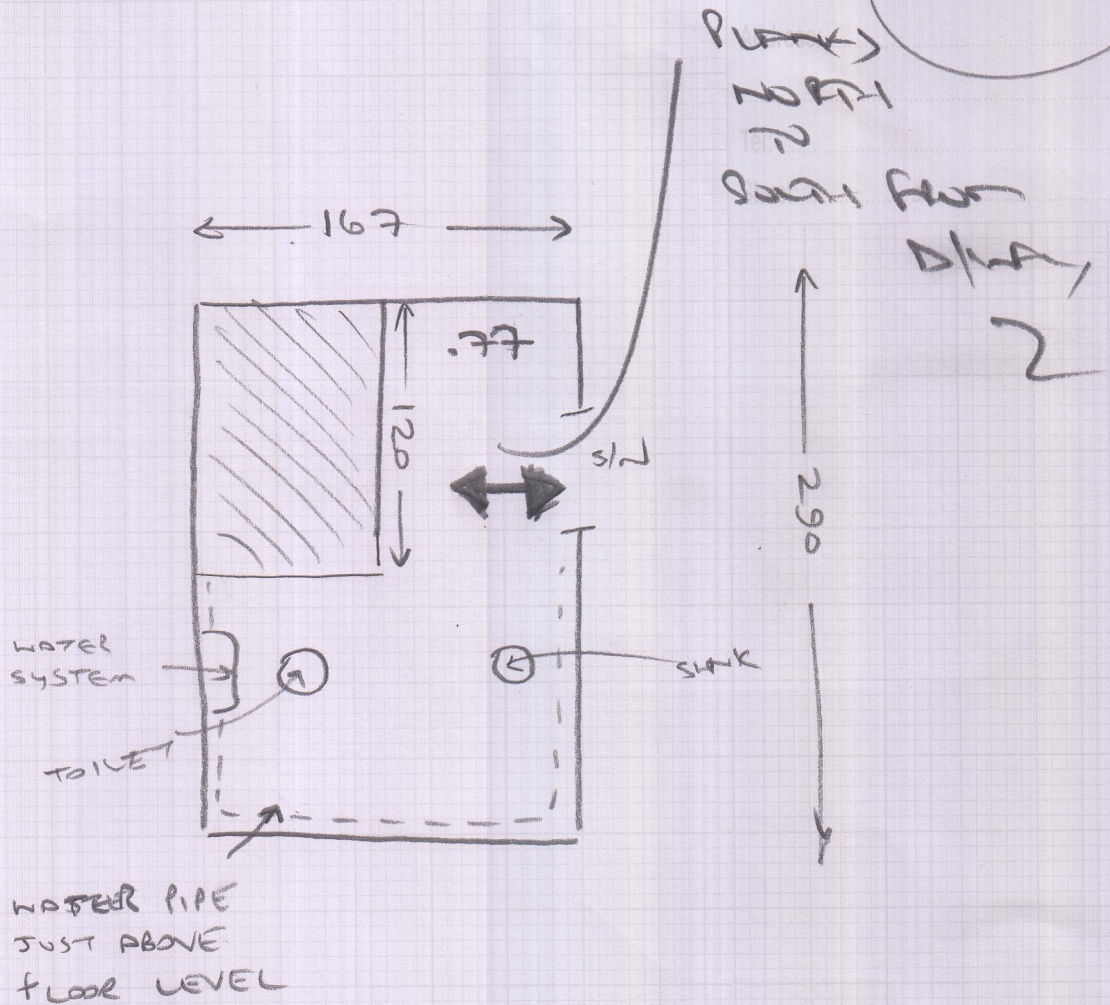 PLANK
NORTH
TO
SOUTH FROM
2
167
.77
120
S/N
290
WATER
SYSTEM
SINK
TOILET
WATER PIPE
JUST ABOVE
FLOOR LEVEL